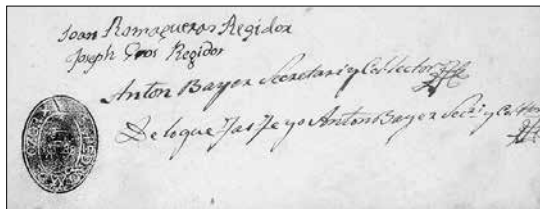 Joan Romagueras Regidor
Joseph Gros Regidor
Anton Bayer Secretari y Col·lector
De lo que fas fe yo Anton Bayer Secri. y Col·tor